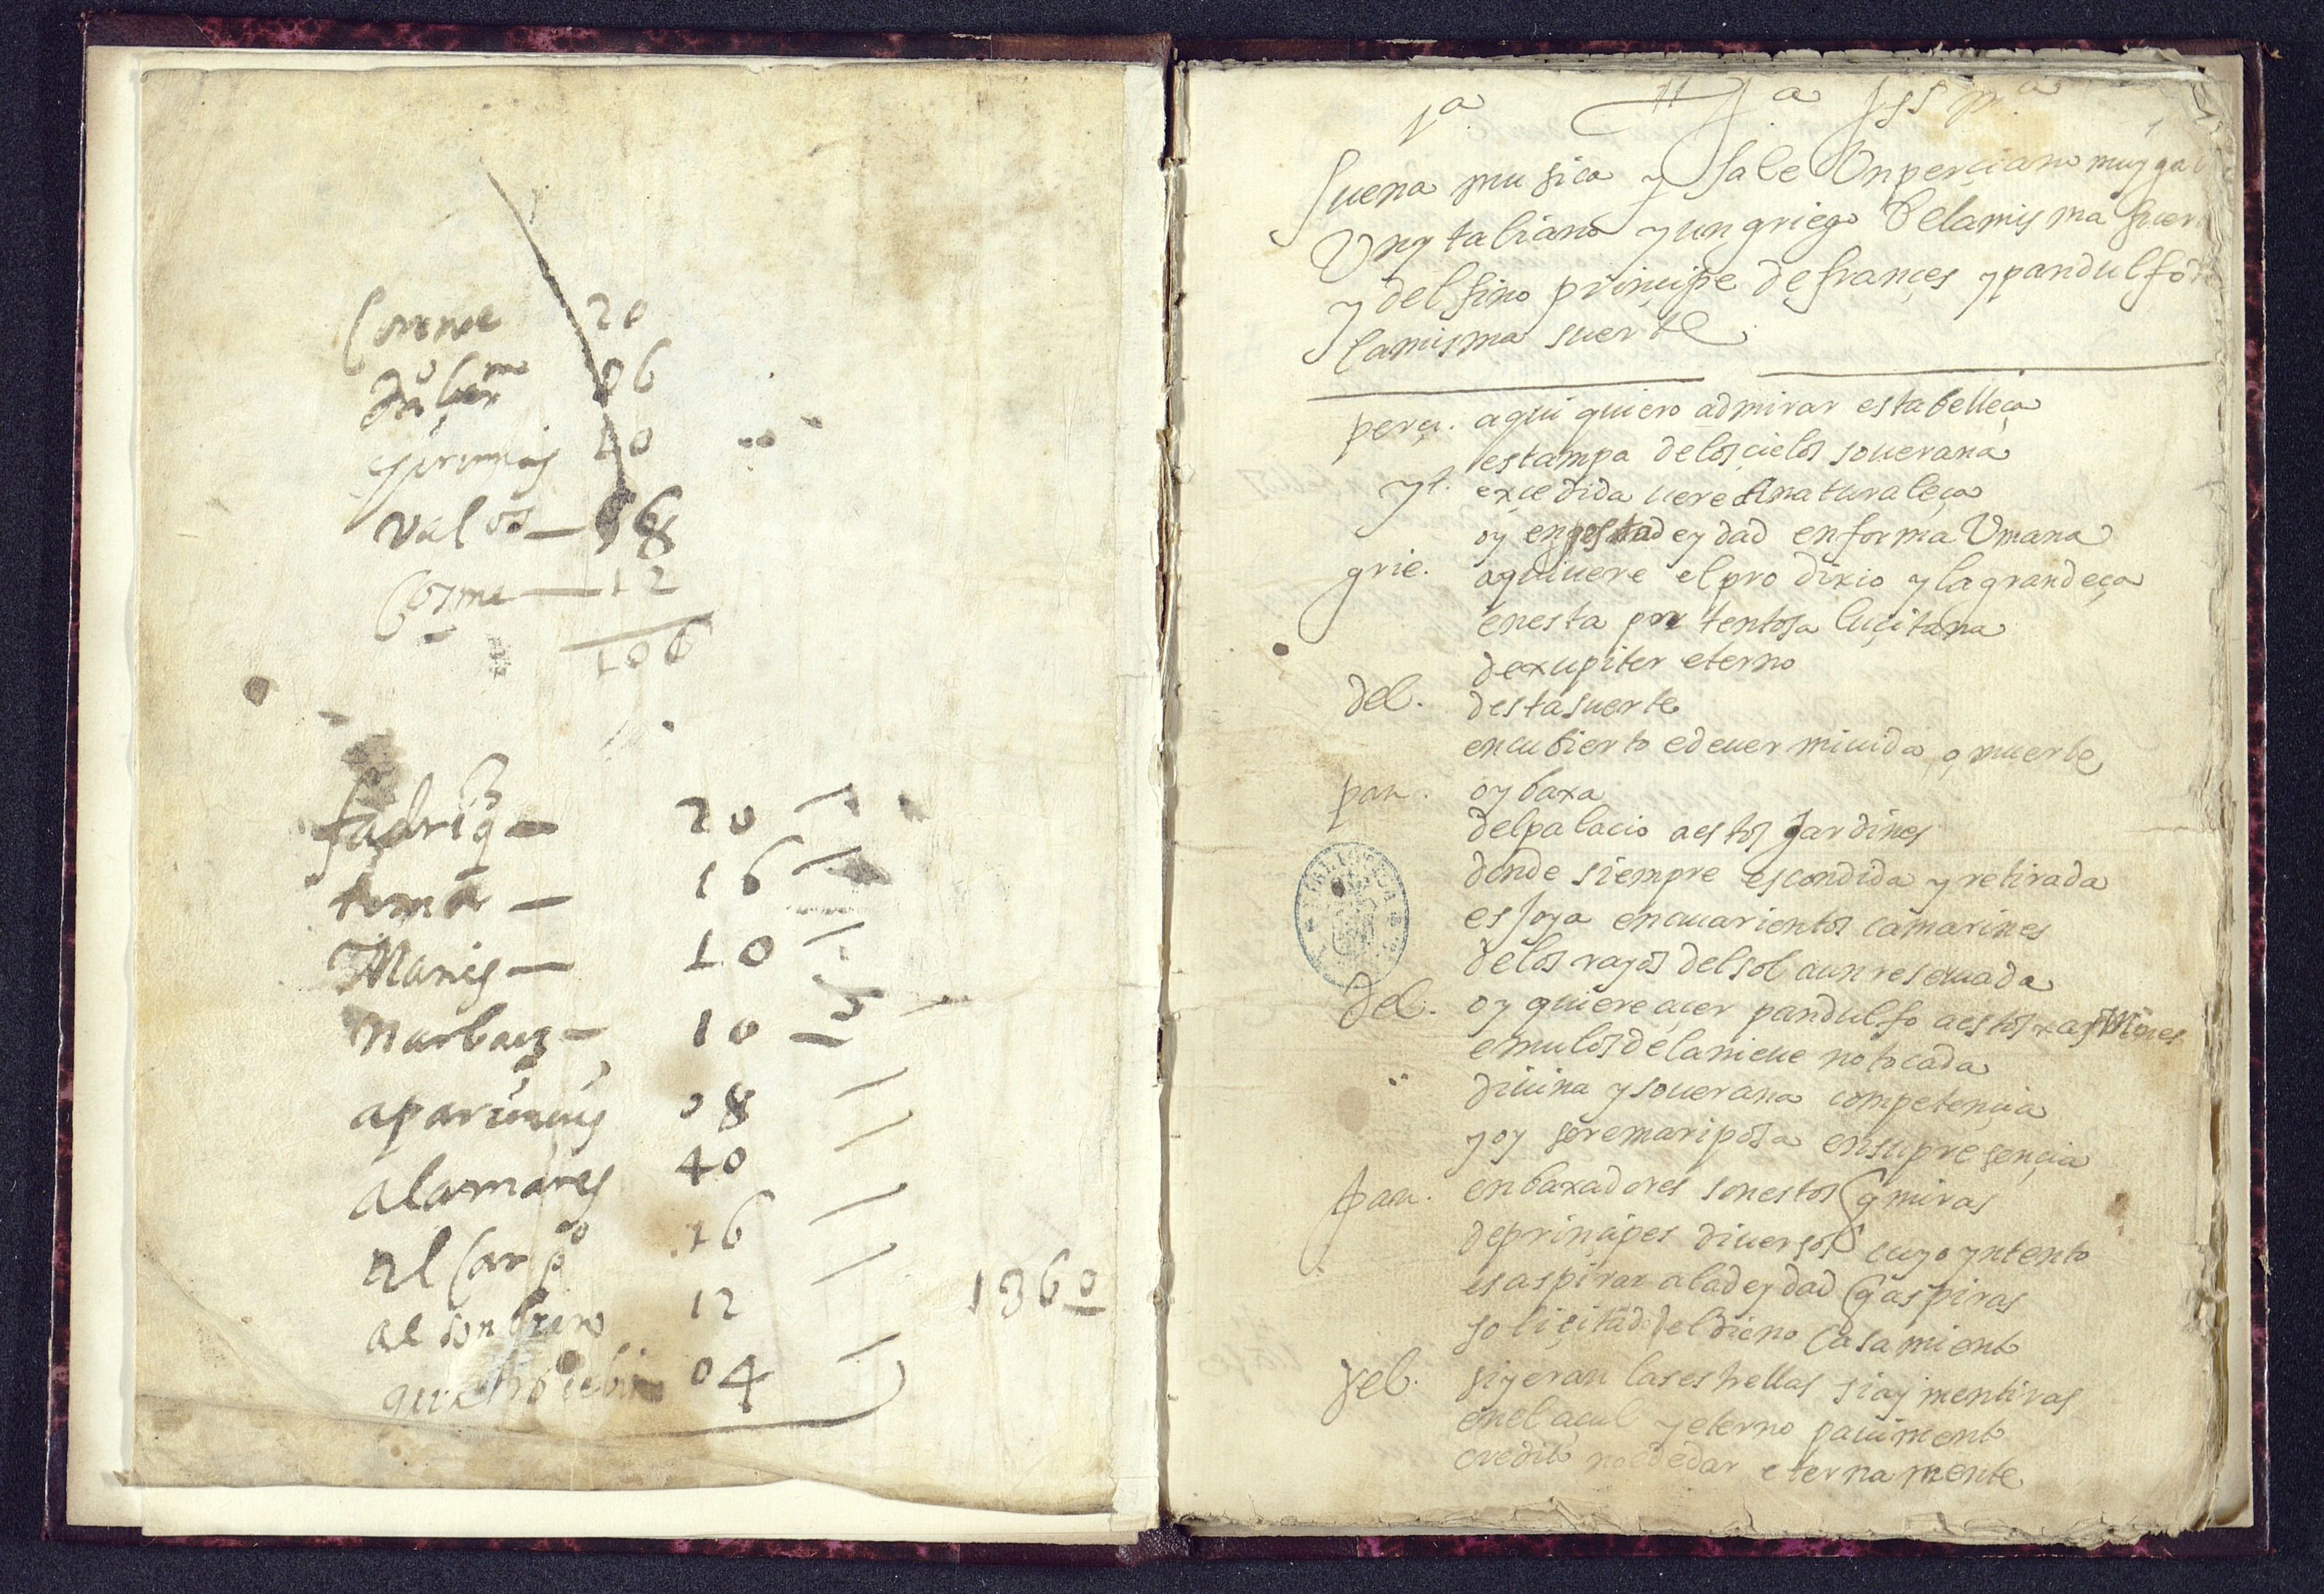 20
06
40
Valos — 58
Cosme — 12
106
fadriq — 20
toma — 16
Manis — 10
Narbaez — 10
08
alamares 40
al Carpo 16
al sonbrero 12
quatro 04
1360
1ª
Suena musica y sale Un perciano muy gal
Un ytaliano y un griego de la misma suer
y delfino principe de françes y pandulfo de
la misma suerte
perçi. aqui quiero admirar esta belleça
estampa de los çielos souerana
yt. exçedida uere la naturaleça
oy en esta deydad en forma Vmana
grie. aqui uere el prodixio y la grandeça
en esta portentosa luçitana
de xupiter eterno
del. desta suerte
encubierto e de uer mi uida o muerte
pan. oy baxa
del palacio a estos Jardines
donde siempre escondida y retirada
es Joya en auarientos camarines
de los rayos del sol aun reseruada
del. oy quiere açer pandulfo a estos xasmines
emulos de la nieue no tocada
diuina y souerana competençia
y oy sere mariposa en su presençia
pan. enbaxadores son estos q miras
de prinçipes diuersos cuyo yntento
es aspirar a la deydad q aspiras
soliçitad del dueno casamiento
del. si yeran las estrellas si ay mentiras
en el açul y eterno pauimento
credito no e de dar eternamente